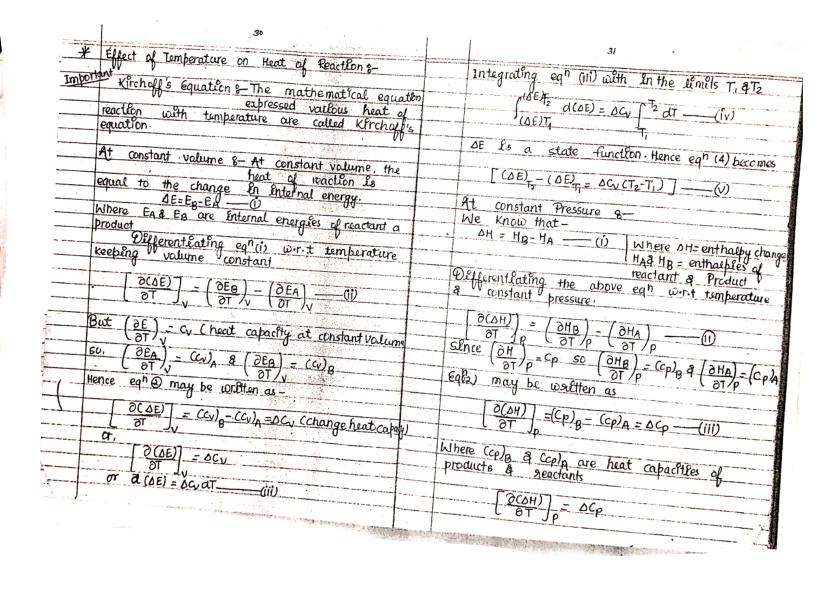 30
* Effect of Temperature on Heat of Reaction :-
Important Kirchoff's Equation :- The mathematical equation
expressed various heat of
reaction with temperature are called Kirchoff's
equation.
At constant volume :- At constant volume, the
heat of reaction is
equal to the change in internal energy.
ΔE = E_B - E_A —— (i)
Where E_A & E_B are internal energies of reactant a
product
Differentiating eqn (i) w.r.t temperature
keeping volume constant
[∂(ΔE)/∂T]_V = (∂E_B/∂T)_V - (∂E_A/∂T)_V —— (ii)
But (∂E/∂T)_V = C_V (heat capacity at constant volume
so, (∂E_A/∂T)_V = (C_V)_A & (∂E_B/∂T)_V = (C_V)_B
Hence eqn ② may be written as -
[∂(ΔE)/∂T]_V = (C_V)_B - (C_V)_A = ΔC_V (change heat capacity)
or,
[∂(ΔE)/∂T]_V = ΔC_V
or d(ΔE) = ΔC_V dT —— (iii)
31
Integrating eqn (iii) with in the limits T1 & T2
∫_{(ΔE)T1}^{(ΔE)T2} d(ΔE) = ΔC_V ∫_{T1}^{T2} dT —— (iv)
ΔE is a state function. Hence eqn (4) becomes
[(ΔE)_T2 - (ΔE)_T1 = ΔC_V (T2 - T1)] —— (v)
At constant Pressure :-
We know that -
ΔH = H_B - H_A —— (i)
Where ΔH = enthalpy change
H_A & H_B = enthalpies of
reactant & Product
Differentiating the above eqn w.r.t temperature
& constant pressure.
[∂(ΔH)/∂T]_P = (∂H_B/∂T)_P - (∂H_A/∂T)_P —— (ii)
Since (∂H/∂T)_P = C_P so (∂H_B/∂T)_P = (C_P)_B & (∂H_A/∂T)_P = (C_P)_A
Eq(2) may be written as
[∂(ΔH)/∂T]_P = (C_P)_B - (C_P)_A = ΔC_P —— (iii)
Where (C_P)_B & (C_P)_A are heat capacities of
products & reactants
[∂(ΔH)/∂T]_P = ΔC_P